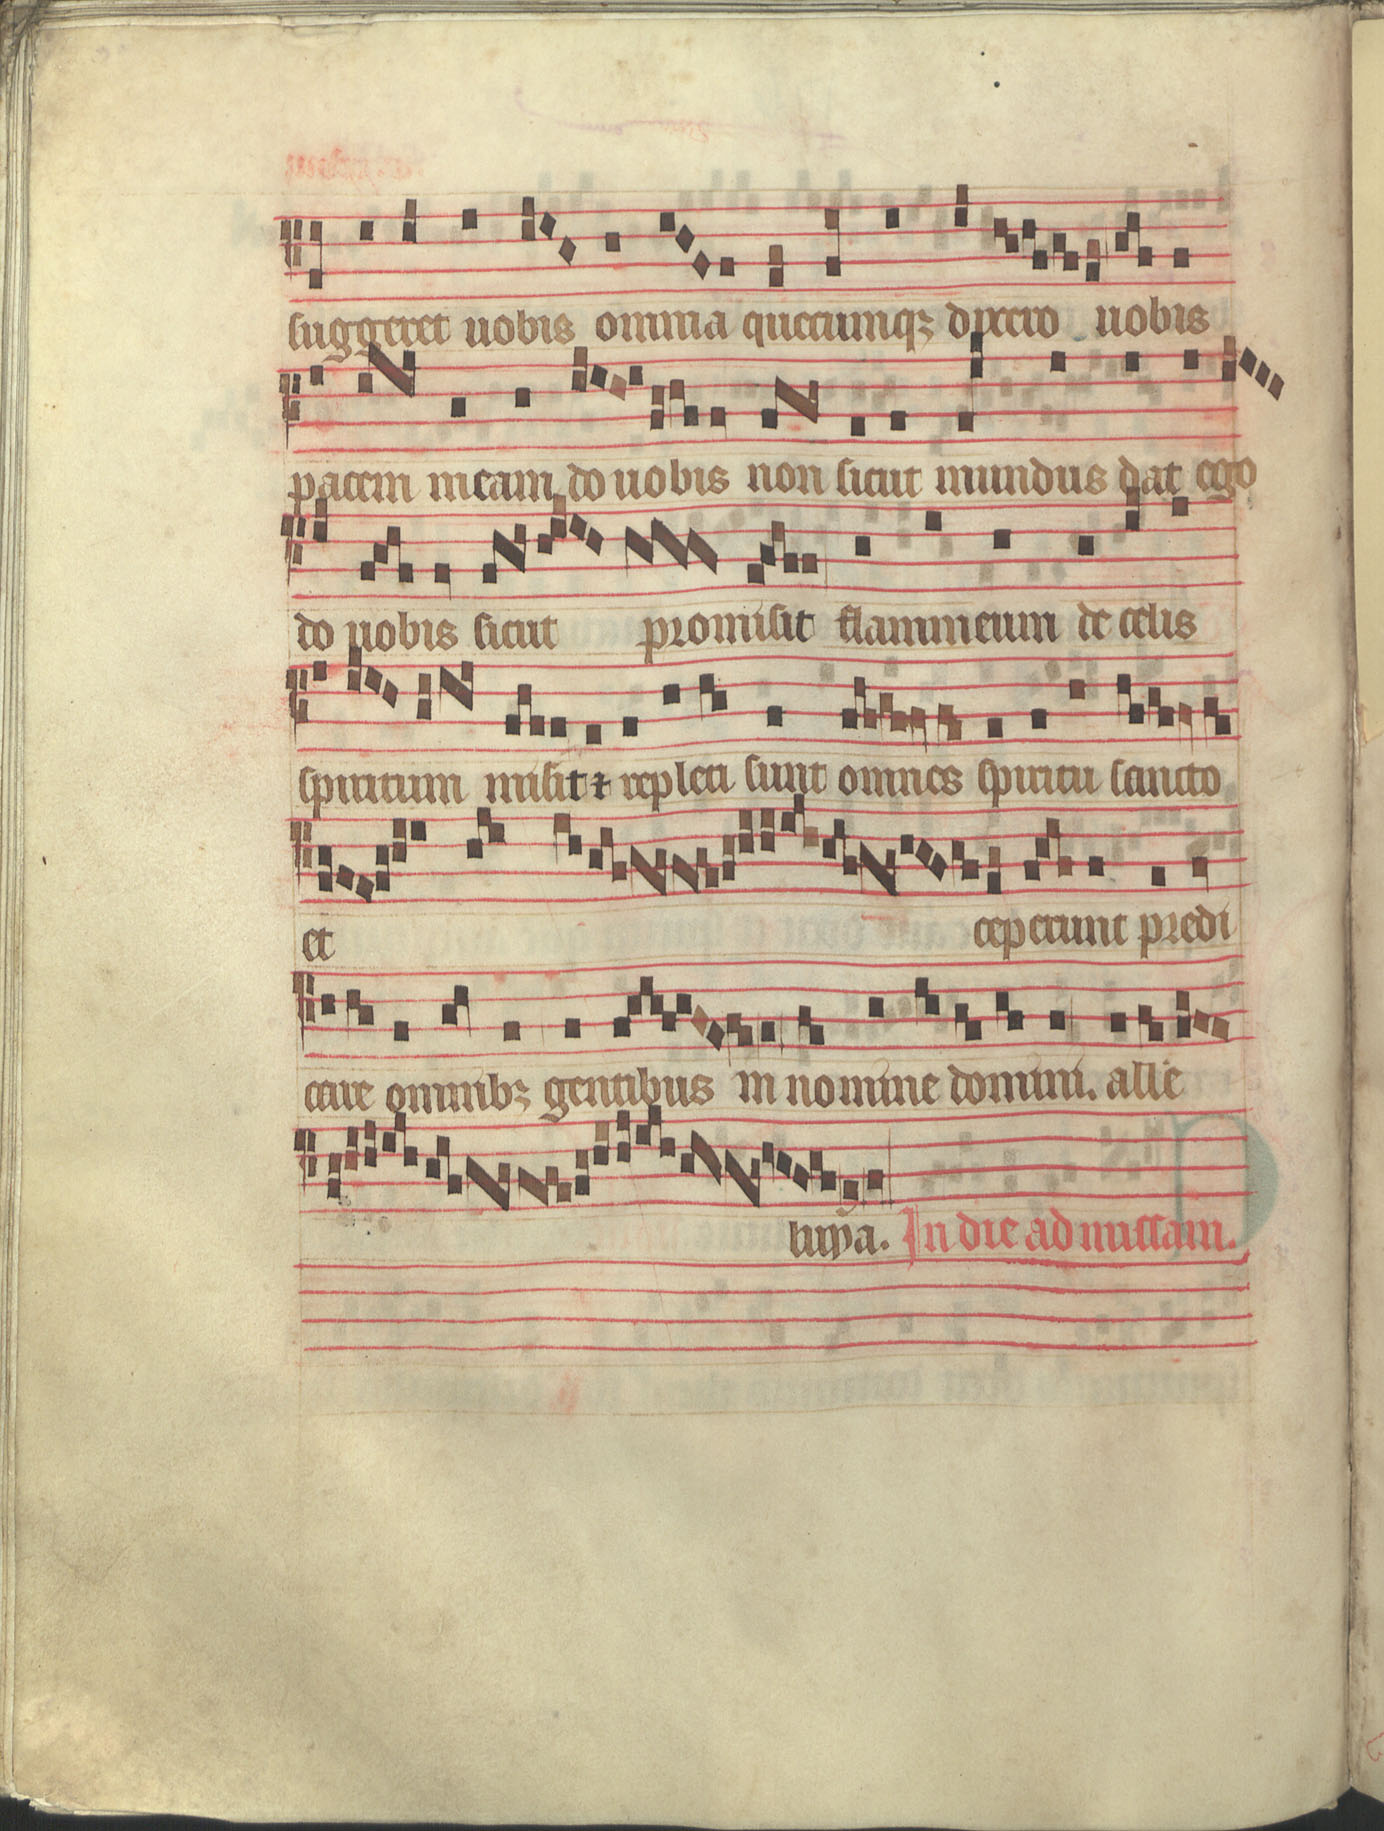 suggeret uobis omnia quecumqꝫ dixero uobis
pacem meam do uobis non sicut mundus dat ego
do uobis sicut promisit flammeum de celis
spiritum misit ⁊ repleti sunt omnes spiritu sancto
et ceperunt predi
care omnibꝫ gentibus in nomine domini. alle
luya. In die ad missam.